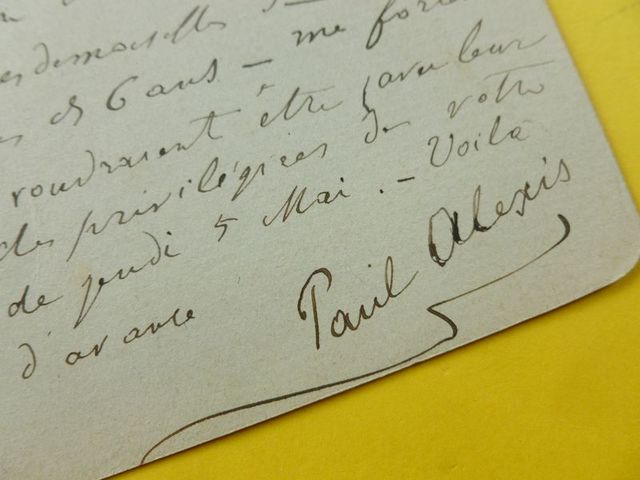 esdemoiselles
6 ans — me
voudraient être, avec leur
des privilégiées de votre
de jeudi 5 Mai. — Voilà
d'avance
Paul Alexis